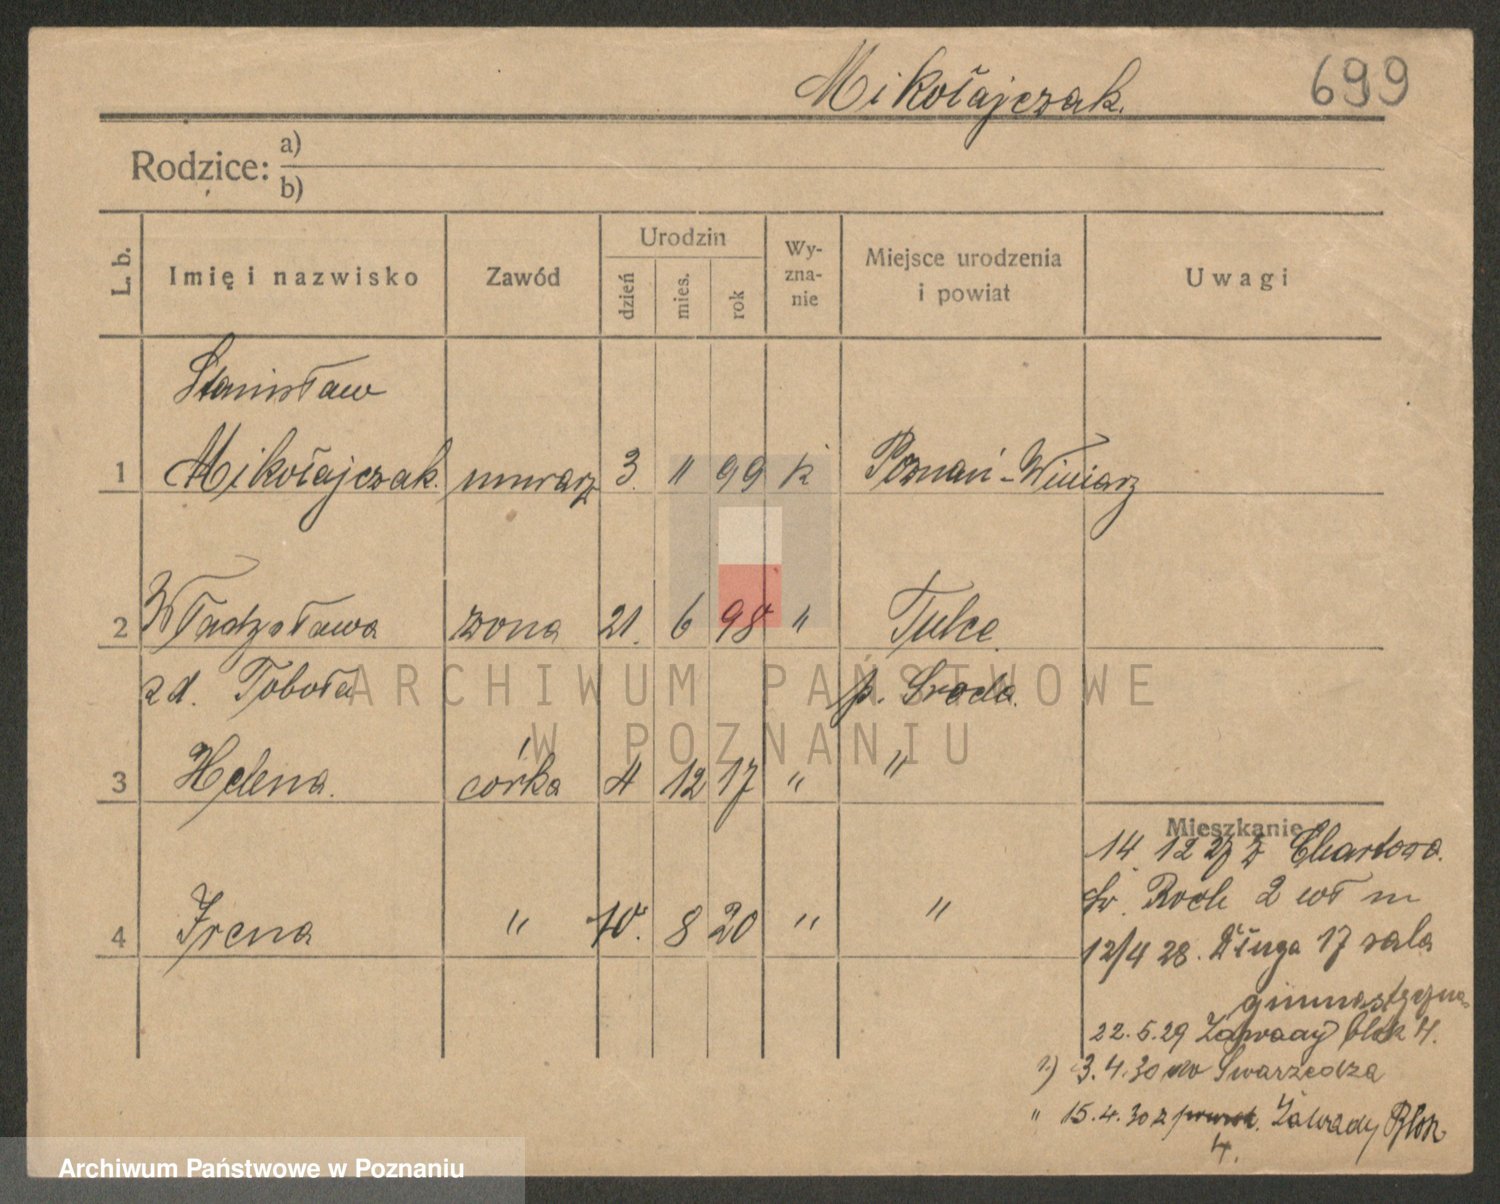 Mikołajczak. 699
Rodzice: a)
b)
L. b. Imię i nazwisko Zawód Urodzin dzień mies. rok Wy-zna-nie Miejsce urodzenia i powiat Uwagi
Stanisław
1 Mikołajczak. murarz 3. " 99 k Poznań-Winiary
2 Władysława żona 21. 6 98 " Tulce
zd. Toboła p. Środa.
ARCHIWUM PAŃSTWOWE
W POZNANIU
3 Helena. córka 4 12 17 " "
Mieszkanie
14 12 27 z Chartowa.
4 Irena " 10. 8 20 " "
św. Roch 2 wł m
12/4 28. Długa 17 sala
gimnastyczna
22.5.29 Zawady blok 4.
1) 3.4.30 do Swarzędza
" 15.4.30 z Zawady Blok
4.
Archiwum Państwowe w Poznaniu